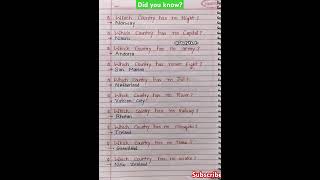 Did you know?
Which Country has no Night?
→ Norway
Which Country has no Capital?
→ Nauru
Which Country has no army?
→ Andorra
Which Country has never Fight?
→ San Marino
Which Country has no Jail?
→ Netherland
Which Country has no River?
→ Vatican City
Which Country has no Railway?
→ Bhutan
Which Country has no Mosquito?
→
Which Country has no
→
Which Country has no snake?
→ New Zealand
Subscribe